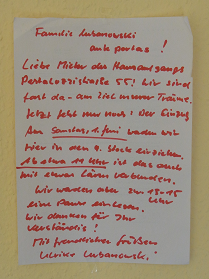 Familie Lubanowski
ante portas !
Liebe Mieter des Hausaufgangs
Pestalozzistraße 55! Wir sind
fast da - am Ziel unserer Träume.
Jetzt fehlt nur noch: Der Einzug
Am Samstag, 1. Juni werden wir
hier in den 4. Stock einziehen.
Ab etwa 11 Uhr ist das auch
mit etwas Lärm verbunden.
Wir werden aber zur 13-15 Uhr
eine Pause einlegen.
Wir danken für Ihr
Verständnis!
Mit freundlichen Grüßen
Ulrike Lubanowski